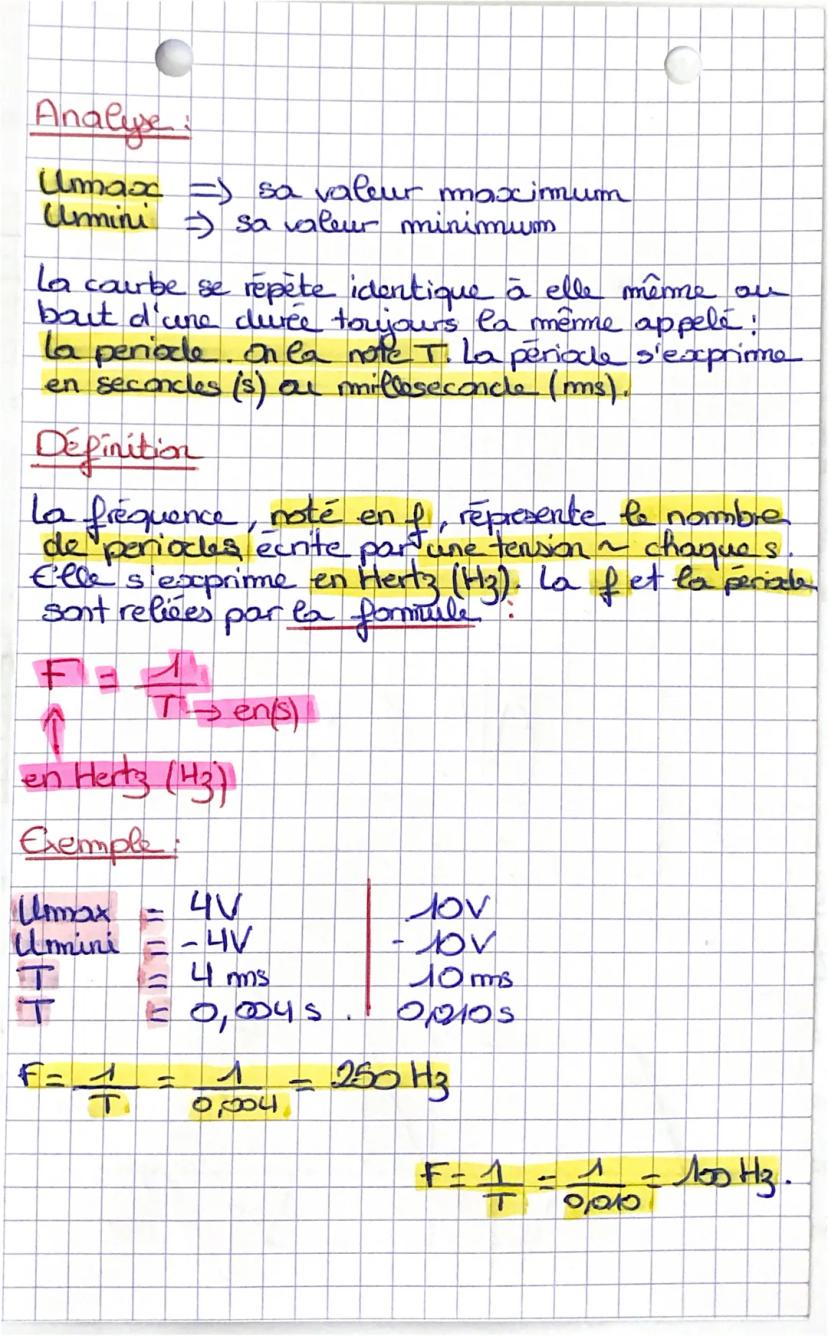 Analyse :
Umax => sa valeur maximum
Umini => sa valeur minimum
La courbe se répète identique à elle même au
bout d'une durée toujours la même appelé :
la periode. On la note T. La période s'exprime
en secondes (s) ou milleseconde (ms).
Définition
La fréquence, noté en f, répresente le nombre
de periodes écrite par une tension ~ chaque s.
Elle s'exprime en Hertz (Hz). La f et la période
sont reliées par la formule :
F = 1/T → en(s)
↑
en Hertz (Hz)
Exemple :
Umax = 4V | 10V
Umini = -4V | -10V
T = 4 ms | 10 ms
T = 0,004 s . | 0,010 s
F = 1/T = 1/0,004 = 250 Hz
F = 1/T = 1/0,010 = 100 Hz.